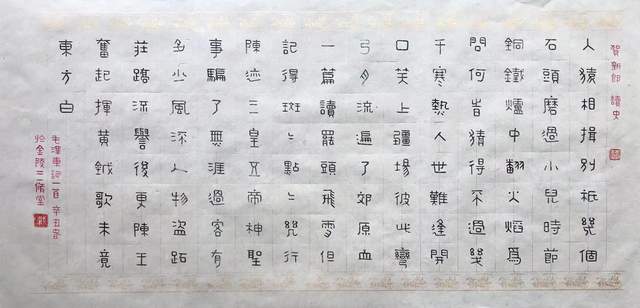 賀新郎 讀史
人猿相揖別祇幾個
石頭磨過小兒時節
銅鐵爐中翻火焰爲
問何旹猜得不過幾
千寒熱人世難逢開
口笑上疆場彼此彎
弓月流遍了郊原血
一篇讀罷頭飛雪但
記得斑〻點〻幾行
陳迹三皇五帝神聖
事騙了無涯過客有
多少風流人物盜跖
莊蹻流譽後更陳王
奮起揮黃鉞歌未竟
東方白
毛澤東詞一首 辛丑
於金陵